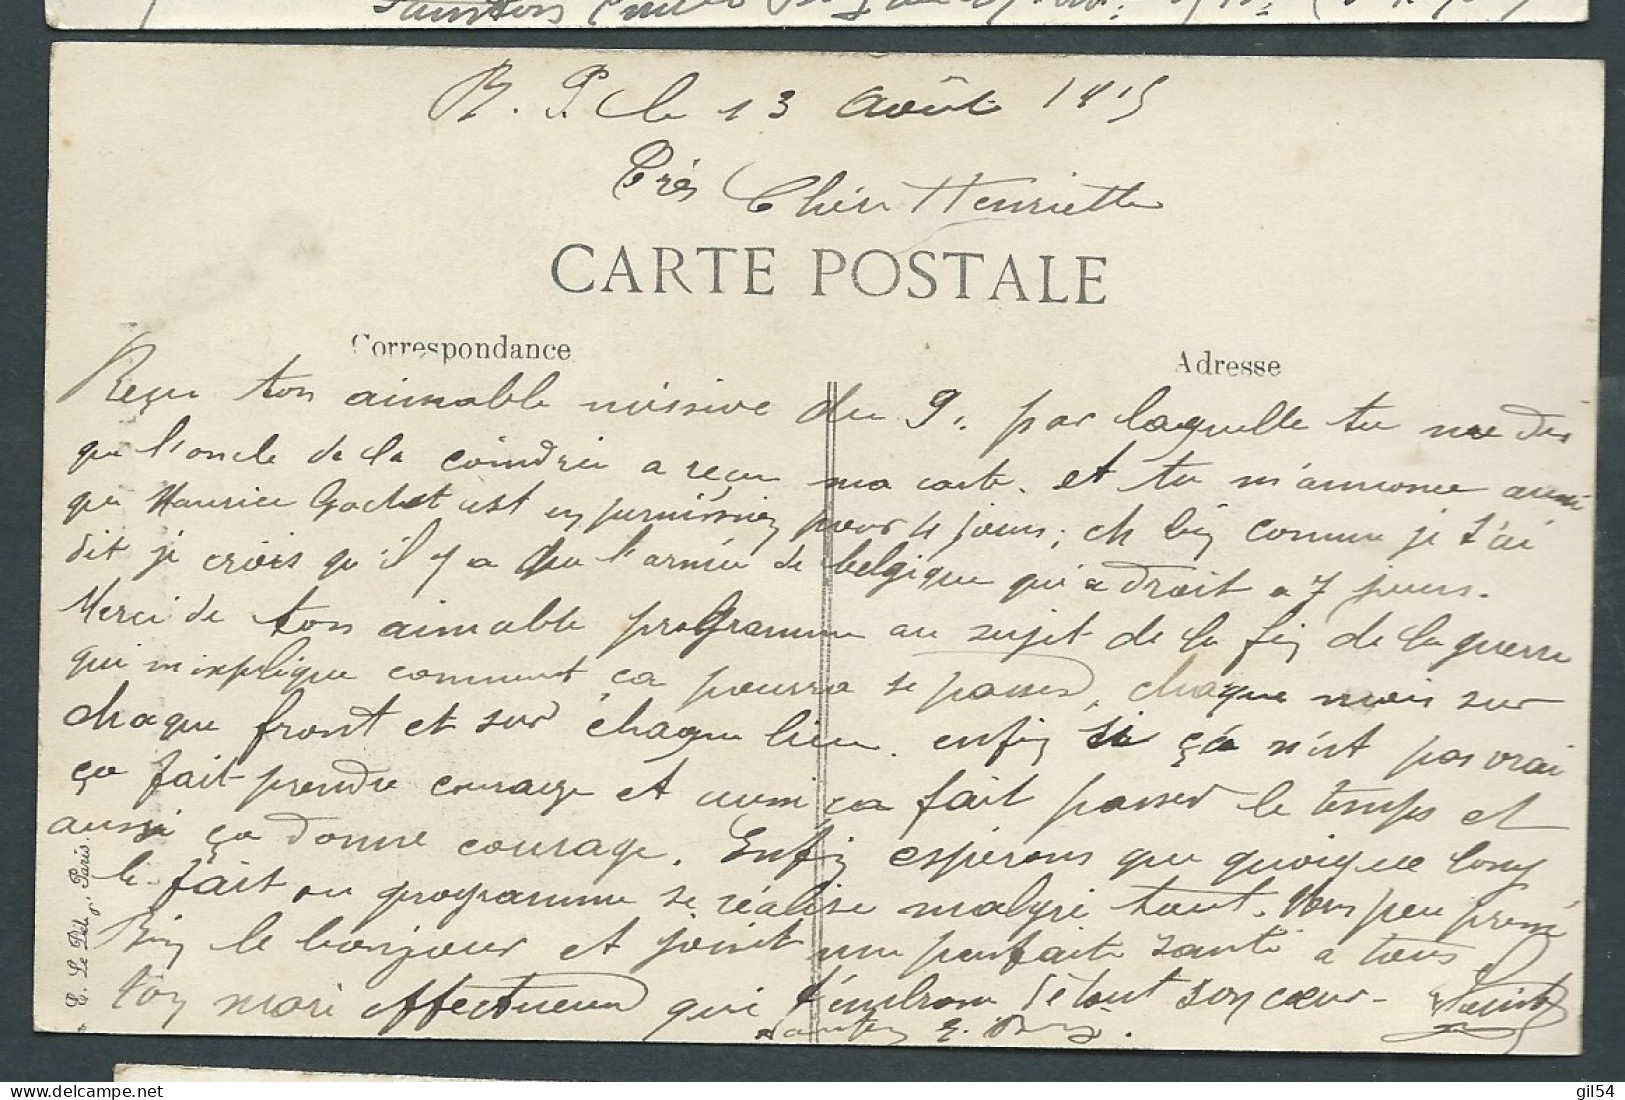 le 13 août 1915
Très Chère Henriette
CARTE POSTALE
Correspondance
Adresse
Reçu ton aimable missive du 9. par laquelle tu me dis
que l'oncle de la coindrie a reçu ma carte. et tu m'annonce aussi
que Maurice Gachet est en permission pour 4 jours; eh bien comme je t'ai
dit je crois qu'il y a que l'armée de belgique qui a droit a 7 jours.
Merci de ton aimable programme au sujet de la fin de la guerre
qui m'explique comment ça pourra se passer, chaque mois sur
chaque front et sur chaque lieu. enfin si ça n'est pas vrai
ça fait prendre courage et aussi ça fait passer le temps et
aussi ça donne courage. Enfin espérons que quoique long
le fait ou programme se réalise malgré tout. Mon peu pressé
Bien le bonjour et point une parfaite santé a tous
ton mari affectueux qui t'embrasse de tout son cœur-
E. Le Deley, Paris
gil54